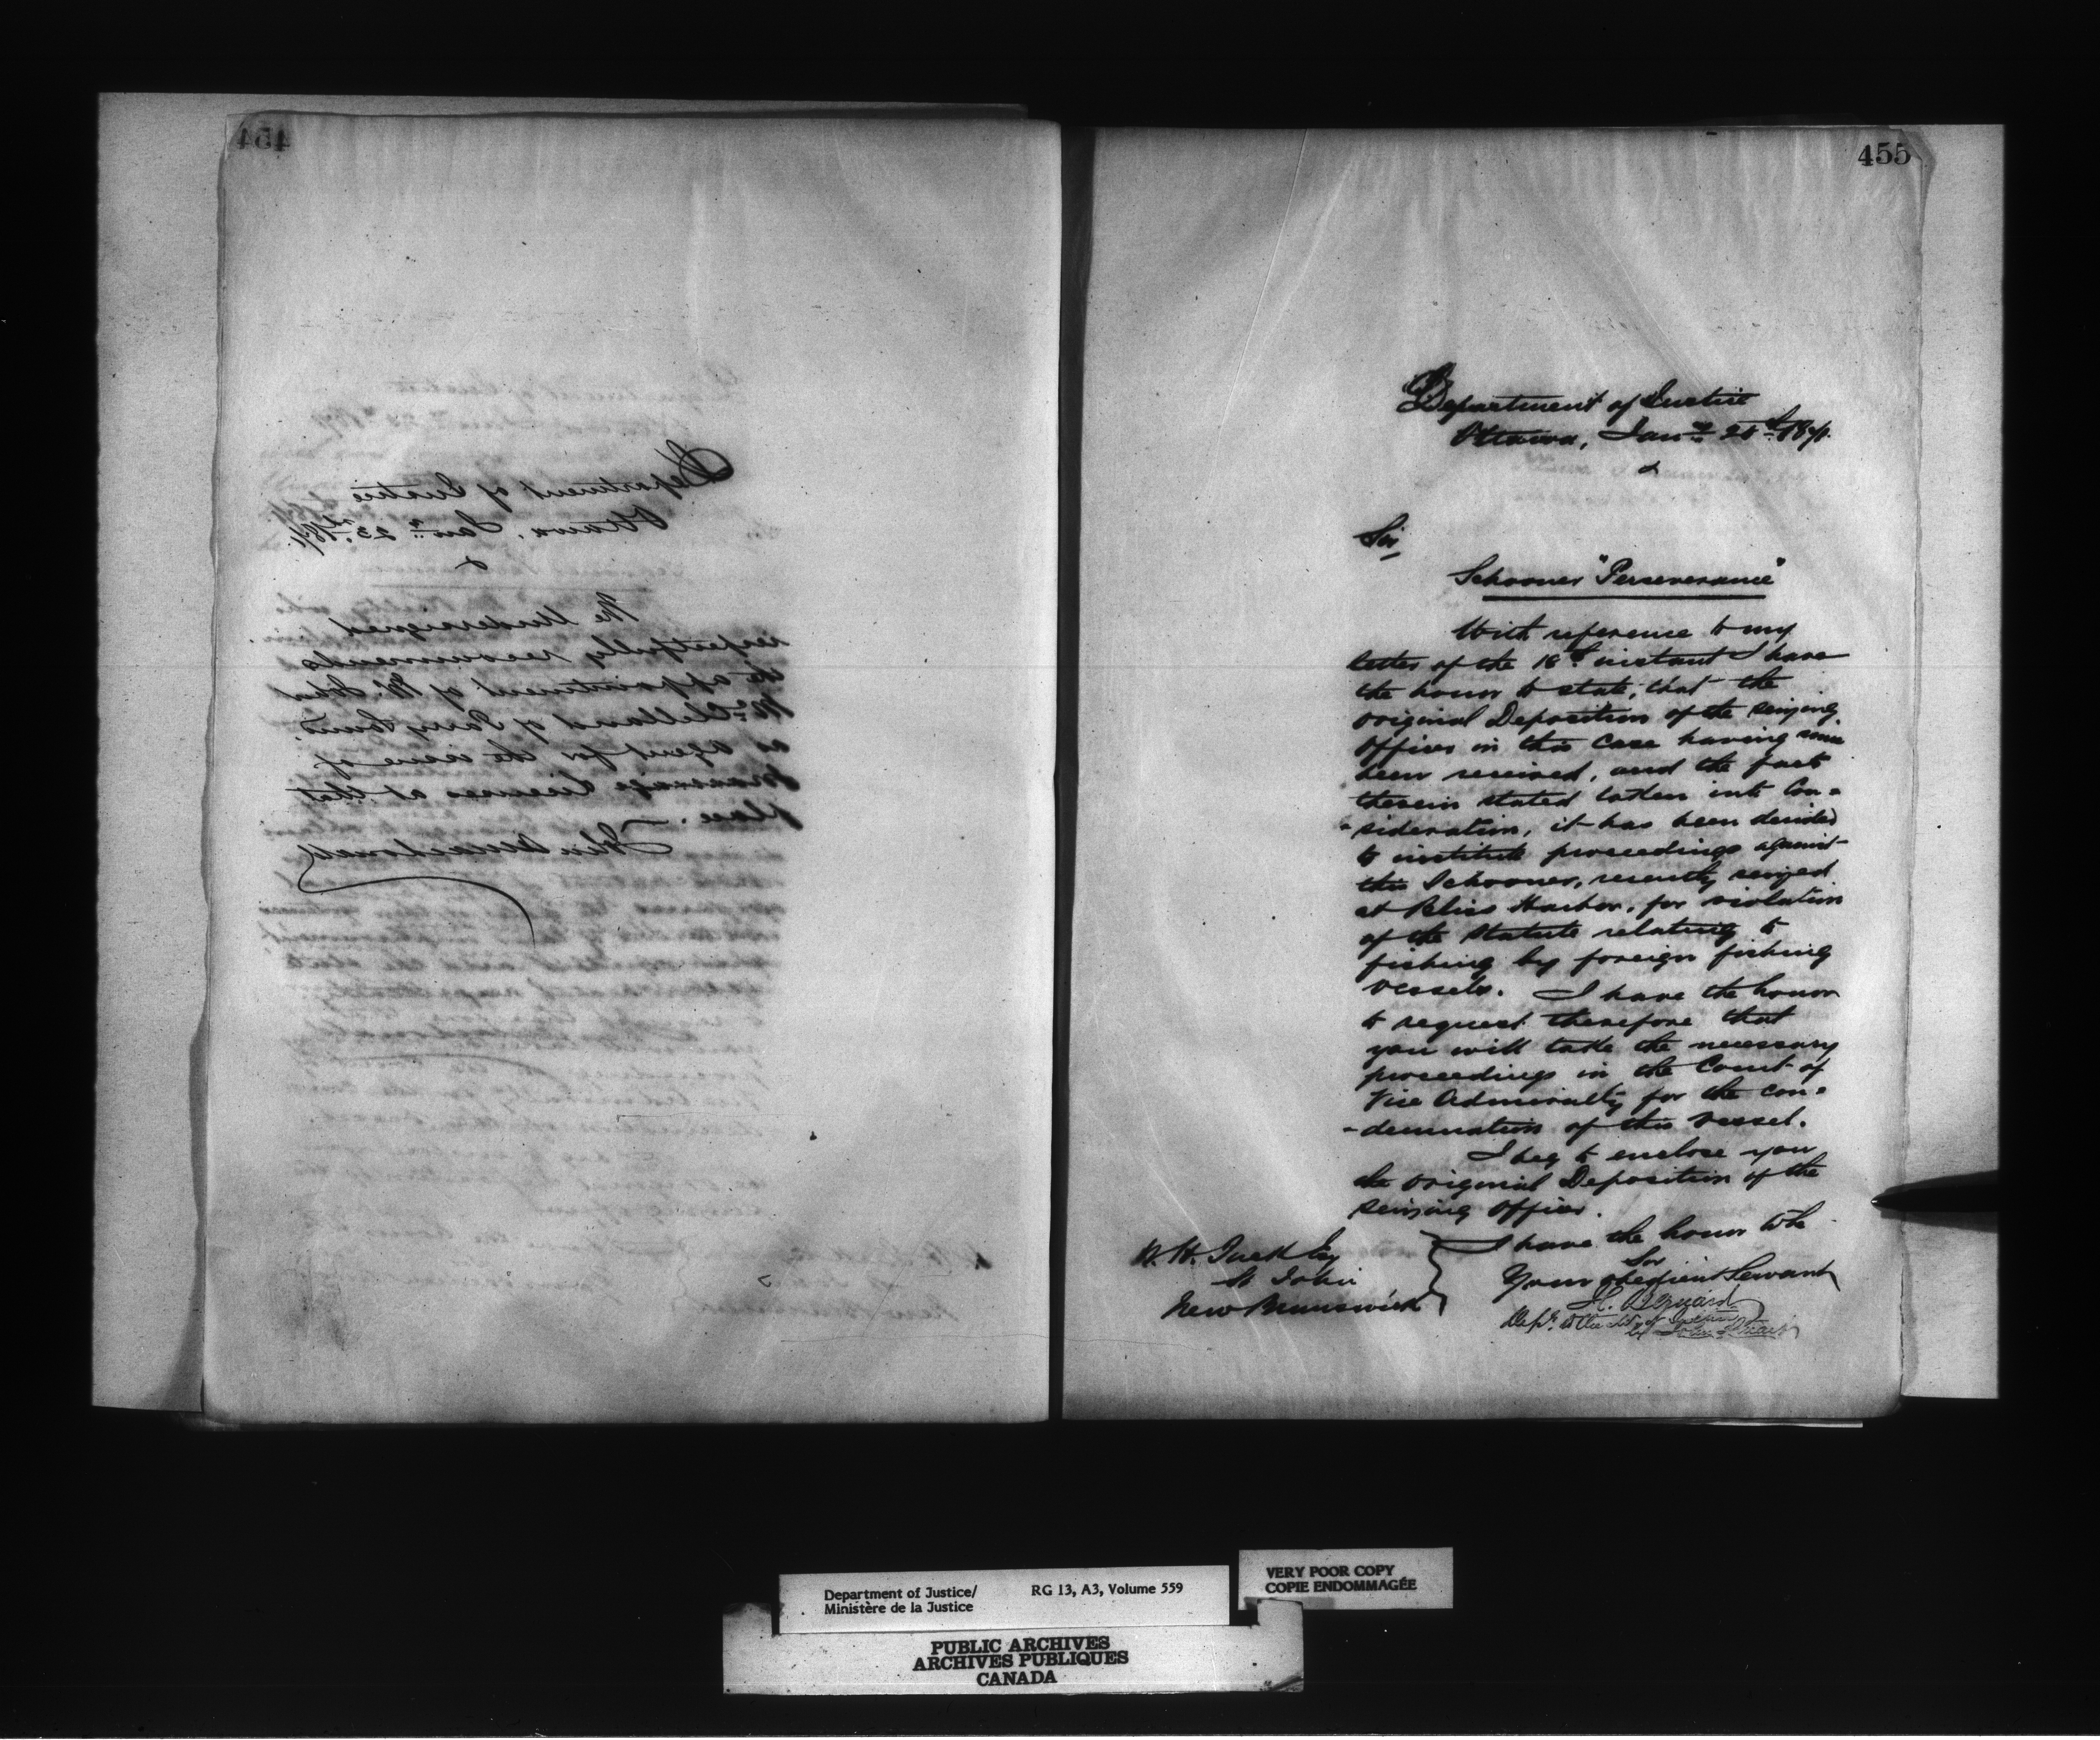 454
Department of Justice
Ottawa, Jany 23rd 1871.
The Undersigned
respectfully recommends
the appointment of Mr. John
McClelland of Parry Sound
as agent for the issue of
Marriage Licenses at that
place.
John A Macdonald
455
Department of Justice
Ottawa, Jany 1871.
Sir
Schooner "Perseverance"
With reference to my
letter of the 18th instant I have
the honor to state, that the
original Deposition of the seizing
officer in this case having since
been received, and the facts
therein stated taken into Con-
-sideration, it has been decided
to institute proceedings against
this Schooner, recently seized
at Bliss Harbor, for violation
of the Statute relating to
fishing by foreign fishing
vessels. I have the honor
to request therefore that
you will take the necessary
proceedings in the Court of
Vice Admiralty for the con-
-demnation of this vessel.
I beg to enclose you
the original Deposition of the
seizing officer.
I have the honor to be
Sir
Your obedient Servant
H. Bernard
W. H. Tuck Esq
St John
New Brunswick
Department of Justice/ RG 13, A3, Volume 559
Ministère de la Justice
VERY POOR COPY
COPIE ENDOMMAGÉE
PUBLIC ARCHIVES
ARCHIVES PUBLIQUES
CANADA